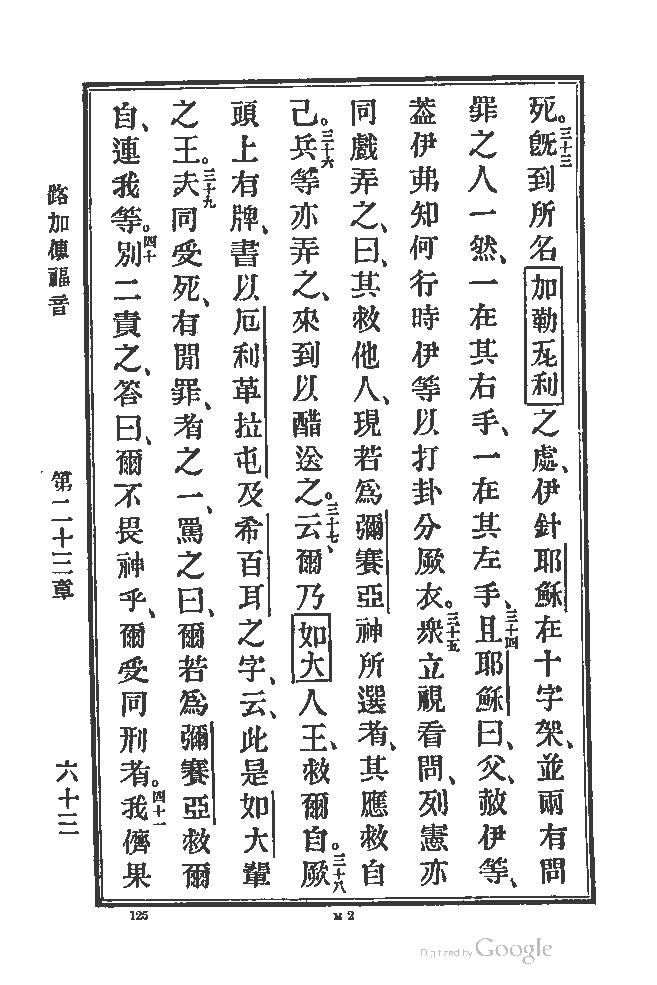 死。三十三旣到所名加勒瓦利之處、伊針耶穌在十字架、並兩有問
罪之人一然、一在其右手、一在其左手、三十四且耶穌曰、父、赦伊等、
蓋伊弗知何行時伊等以打卦分厥衣。三十五衆立視看問、列憲亦
同戲弄之、曰、其救他人、現若爲彌賽亞神所選者、其應救自
己。三十六兵等亦弄之、來到以醋送之。三十七云、爾乃如大人王、救爾自。三十八厥
頭上有牌、書以厄利革拉屯及希百耳之字、云、此是如大輩
之王。三十九夫同受死、有閒罪、者之一、罵之曰、爾若爲彌賽亞救爾
自、連我等。四十別二責之、答曰、爾不畏神乎、爾受同刑者。四十一我儕果
路加傳福音 第二十三章 六十三
125 M 2
Digitized by Google